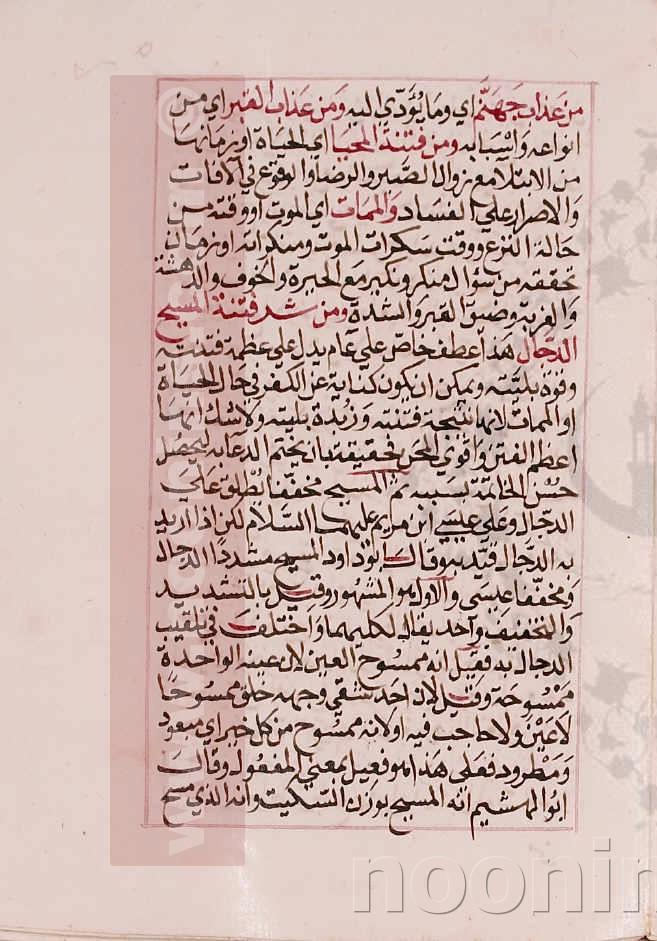 من عذاب جهنم اي وما يؤدي اليه ومن عذاب القبر اي من
انواعه واسبابه ومن فتنة المحيا اي الحياة او زمانها
من الابتلا مع زوال الصبر والرضا والوقوع في الآفات
والاصرار علي الفساد والممات اي الموت او وقته من
حالة النزع ووقت سكرات الموت ومنكراته او زمان
تحققه من سؤال منكر ونكير مع الحيرة والخوف والدهشة
والغربة وضيق القبر والشدة ومن شر فتنة المسيح
الدجال هذا عطف خاص علي عام يدل علي عظمة فتنته
وقوة بليته ويمكن ان يكون كناية عن الكفر في حال الحياة
او الممات لانها نتيجة فتنته وزبدة بليته ولا شك انها
اعظم الفتن واقوي المحن فحقيقة بان يختم الدعا به ليحصل
حسن الخاتمة بسببه ثم المسيح مخففا يطلق علي
الدجال وعلي عيسي ابن مريم عليهما السلام لكن اذا اريد
به الدجال قيد به وقال ابو داود المسيح مشددا الدجال
ومخففا عيسى والاول هو المشهور وقيل بالتشديد
والتخفيف واحد يقال لكليهما واختلف في تلقيب
الدجال به فقيل انه ممسوح العين لان عينه الواحدة
ممسوحة وقيل لان احد شقي وجهه خلق ممسوحا
لا عين ولا حاجب فيه او لانه ممسوح من كل خير اي مبعود
ومطرود فعلى هذا هو فعيل بمعني المفعول وقال
ابو الهشيم انه المسيح بوزن السكيت وانه الذي مسح
noonin